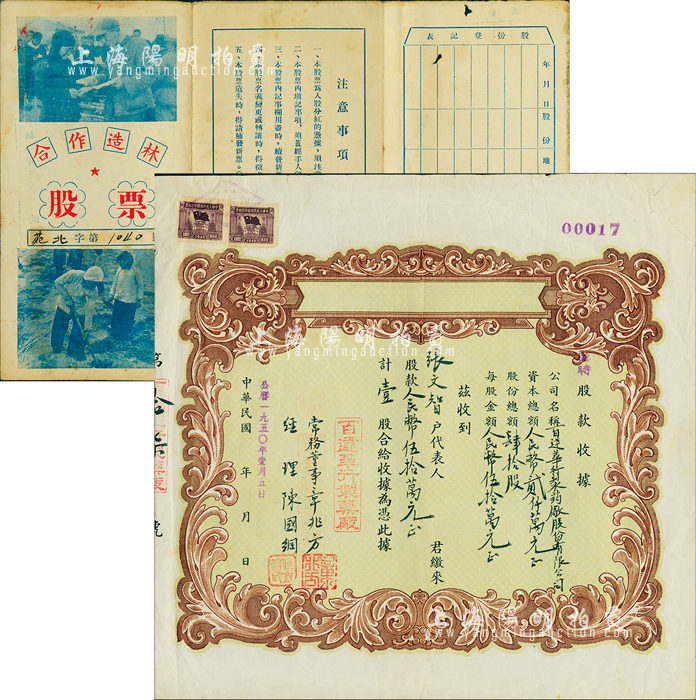 上海陽明拍賣
www.yangmingauction.com
合作造林
股票
苑北字第1040
注意事項
一、本股票為入股分紅的憑據，須注
二、本股票內填記事項，須蓋經手人
三、本股票內記事欄用盡時，續發新
四、本股票名義變更或轉讓時，得徵
五、本股票遺失時，得請補發新票。
股份登記表
年月日
股份
地
00017
臨時
股款收據
公司名稱百達華行製藥廠股份有限公司
資本總額人民幣貳仟萬元正
股份總額肆拾股
每股金額人民幣伍拾萬元正
茲收到
張文智戶代表人 君繳來
股款人民幣伍拾萬元正
計壹股合給收據為憑此據
百達華行製藥廠
常務董事章兆方
經理陳國綱
公曆一九五〇年壹月五日
中華民國 年 月 日
第拾柒號
上海陽明拍賣
www.yangmingauction.com
上海陽明拍賣
www.yangmingauction.com